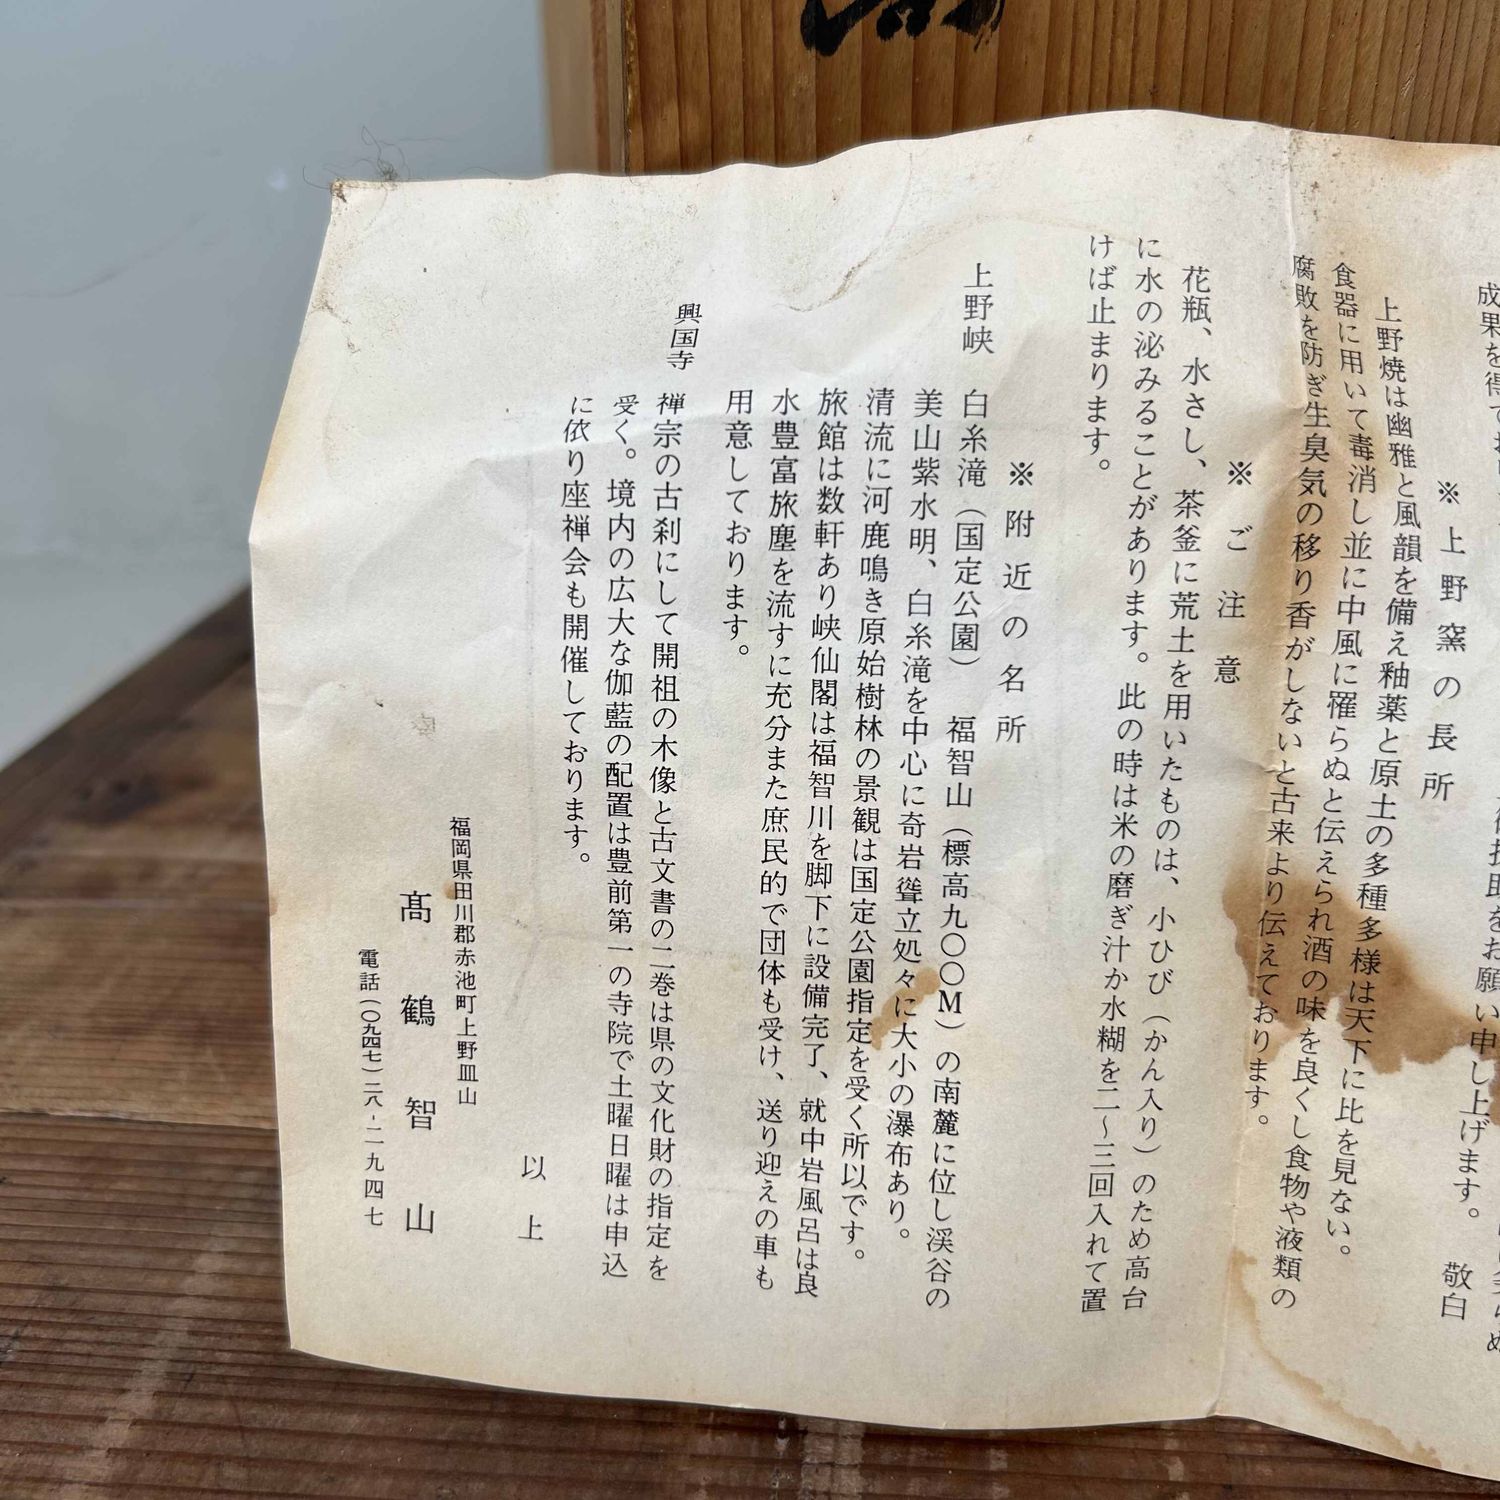 成果を得て
御援助をお願い申し上げます。
敬白
※上野窯の長所
上野焼は幽雅と風韻を備え釉薬と原土の多種多様は天下に比を見ない。
食器に用いて毒消し並に中風に罹らぬと伝えられ酒の味を良くし食物や液類の
腐敗を防ぎ生臭気の移り香がしないと古来より伝えております。
※ご注意
花瓶、水さし、茶釜に荒土を用いたものは、小ひび（かん入り）のため高台
に水の泌みることがあります。此の時は米の磨ぎ汁か水糊を二〜三回入れて置
けば止まります。
※附近の名所
上野峡 白糸滝（国定公園） 福智山（標高九〇〇M）の南麓に位し渓谷の
美山紫水明、白糸滝を中心に奇岩聳立処々に大小の瀑布あり。
清流に河鹿鳴き原始樹林の景観は国定公園指定を受く所以です。
旅館は数軒あり峡仙閣は福智川を脚下に設備完了、就中岩風呂は良
水豊富旅塵を流すに充分また庶民的で団体も受け、送り迎えの車も
用意しております。
興国寺 禅宗の古刹にして開祖の木像と古文書の二巻は県の文化財の指定を
受く。境内の広大な伽藍の配置は豊前第一の寺院で土曜日曜は申込
に依り座禅会も開催しております。
以上
福岡県田川郡赤池町上野皿山
髙鶴智山
電話（〇九四七）二八‐二九四七